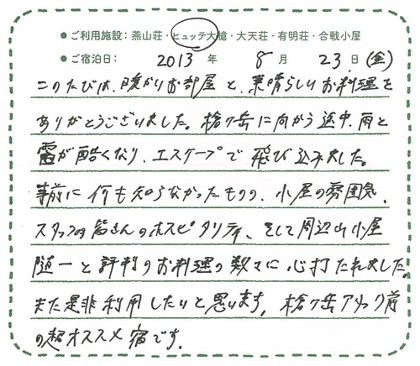 ●ご利用施設：燕山荘・ヒュッテ大槍・大天荘・有明荘・合戦小屋
●ご宿泊日： 2013 年 8 月 23 日(金)
このたびは、暖かいお部屋と、素晴らしいお料理を
ありがとうございました。槍ヶ岳に向かう途中、雨と
雷が酷くなり、エスケープで飛び込みました。
事前に何も知らなかったものの、小屋の雰囲気、
スタッフの皆さんのホスピタリティ、そして周辺山小屋
随一と評判のお料理の数々に心打たれました。
また是非利用したいと思います。槍ヶ岳アタック前
の超オススメ宿です。